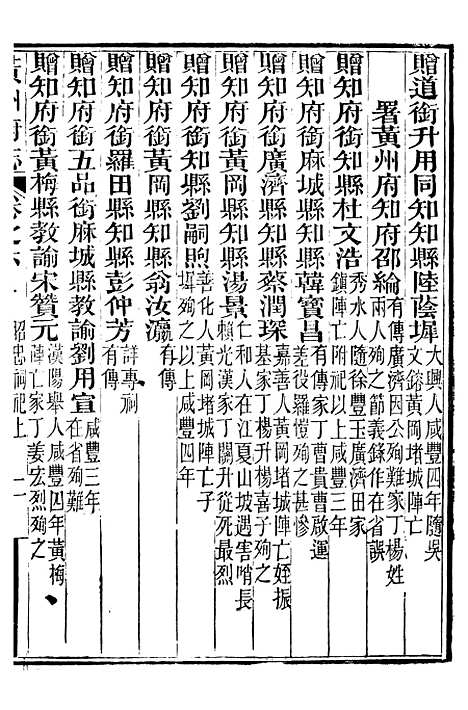 贈道銜升用同知知縣陸蔭墀大興人咸豐四年隨吳
文鎔黃岡堵城陣亡
署黃州府知府邵綸有傳廣濟因公殉難家丁楊姓
兩人殉之節義錄作在省誤
贈知府銜知縣杜文浩秀水人隨徐豐玉廣濟田家
鎮陣亡附祀以上咸豐三年
贈知府銜麻城縣知縣韓寶昌有傳家丁曹貴曹啟運
差役羅愷殉之甚慘
贈知府銜廣濟縣知縣蔡潤琛嘉善人黃岡堵城陣亡姪振
基家丁楊升楊喜子殉之
贈知府銜黃岡縣知縣湯景仁和人在江夏山坡遇害哨長
賴光漢家丁關升從死最烈
贈知府銜知縣劉嗣煦善化人黃岡堵城陣亡子
墀殉之以上咸豐四年
贈知府銜黃岡縣知縣翁汝瀛有傳
贈知府銜羅田縣知縣彭仲芳詳專祠
有傳
贈知府銜五品銜麻城縣教諭劉用宣咸豐三年
在省殉難
贈知府銜黃梅縣教諭宋贊元漢陽舉人咸豐四年黃梅
陣亡家丁姜宏烈殉之
黃州府志 卷之六 昭忠祠祀上 二